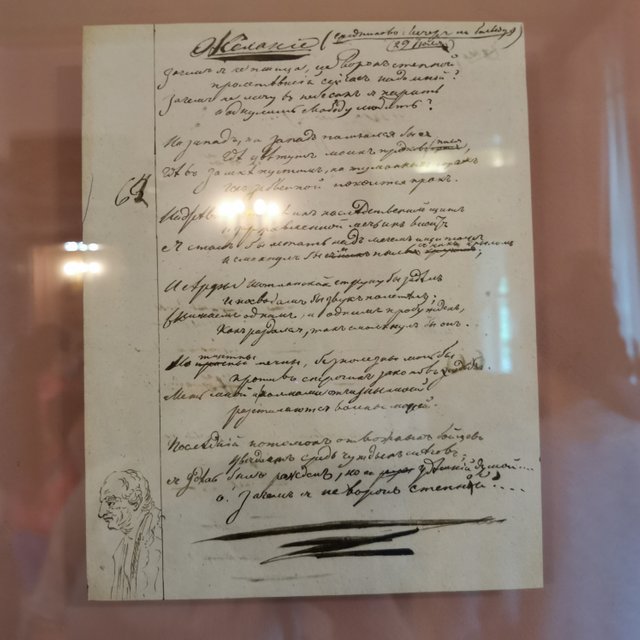 Желаніе (Средниково: Вечеръ на бельведерѣ)
(29 Іюля)
Зачемъ я не птица, не воронъ степной
пролетѣвшій сейчасъ надо мной?
Зачемъ не могу въ небесахъ я парить
и одну лишь свободу любить?
На западъ, на западъ помчался бы я
Гдѣ цвѣтутъ моихъ предковъ поля
Гдѣ въ замкѣ пустомъ, на туманныхъ горахъ
Ихъ забвенной покоится прахъ.
63
На древ ихъ наслѣдственный щитъ
И заржавленной мечъ ихъ виситъ
Я сталъ бы летать надъ мечемъ и щитомъ
и смахнулъ бы я пыль съ нихъ крыломъ;
И арфы шотландской струну бы задѣлъ
И по сводамъ бы звукъ полетѣлъ;
Внимаемъ однимъ, и однимъ пробужденъ,
Какъ раздался, такъ смолкнулъ бы онъ.
Но тщетны мечты, безполезны мольбы
противъ строгихъ законовъ судьбы.
Межъ мной и холмами отчизны моей
разстилаются волны морей.
Послѣдній потомокъ отважныхъ бойцовъ
увядаетъ средь чуждыхъ снеговъ;
Я здѣсь былъ рожденъ, но не здѣшній душой...
О! Зачемъ я не воронъ степной?...